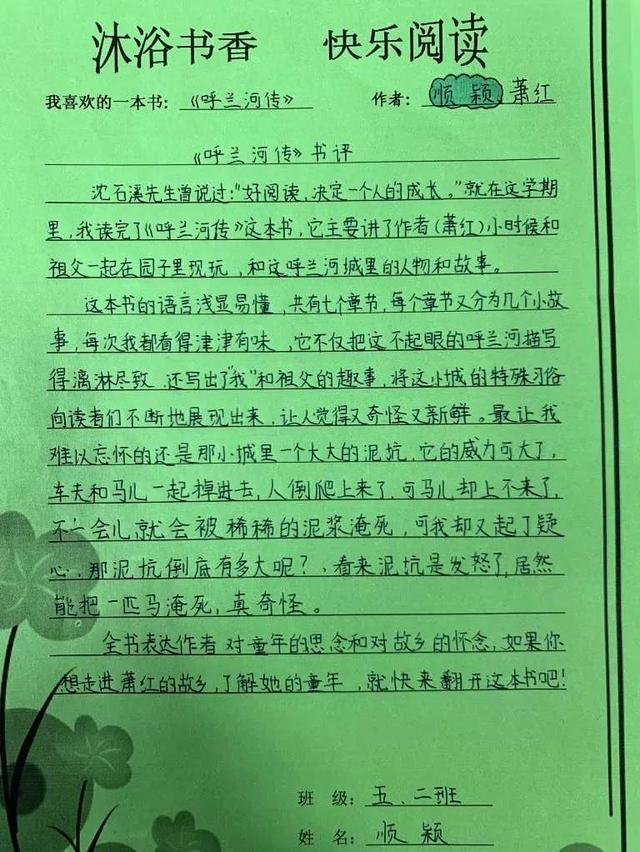 沐浴书香 快乐阅读
我喜欢的一本书：《呼兰河传》 作者：顺颖 萧红
《呼兰河传》书评
沈石溪先生曾说过："好阅读，决定一个人的成长。"就在这学期
里，我读完了《呼兰河传》这本书，它主要讲了作者（萧红）小时候和
祖父一起在园子里现玩，和这呼兰河城里的人物和故事。
这本书的语言浅显易懂，共有七个章节，每个章节又分为几个小故
事，每次我都看得津津有味，它不仅把这不起眼的呼兰河描写
得漓淋尽致，还写出了"我"和祖父的趣事，将这小城的特殊习俗
向读者们不断地展现出来，让人觉得又奇怪又新鲜。最让我
难以忘怀的还是那小城里一个大大的泥坑，它的威力可大了，
车夫和马儿一起掉进去，人倒爬上来了，可马儿却上不来了，
不一会儿就会被稀稀的泥浆淹死，可我却又起了疑
心，那泥坑倒底有多大呢？，看来泥坑是发怒了，居然
能把一匹马淹死，真奇怪。
全书表达作者对童年的思念和对故乡的怀念，如果你
想走进萧红的故乡，了解她的童年，就快来翻开这本书吧！
班 级：五、二班
姓 名：顺颖